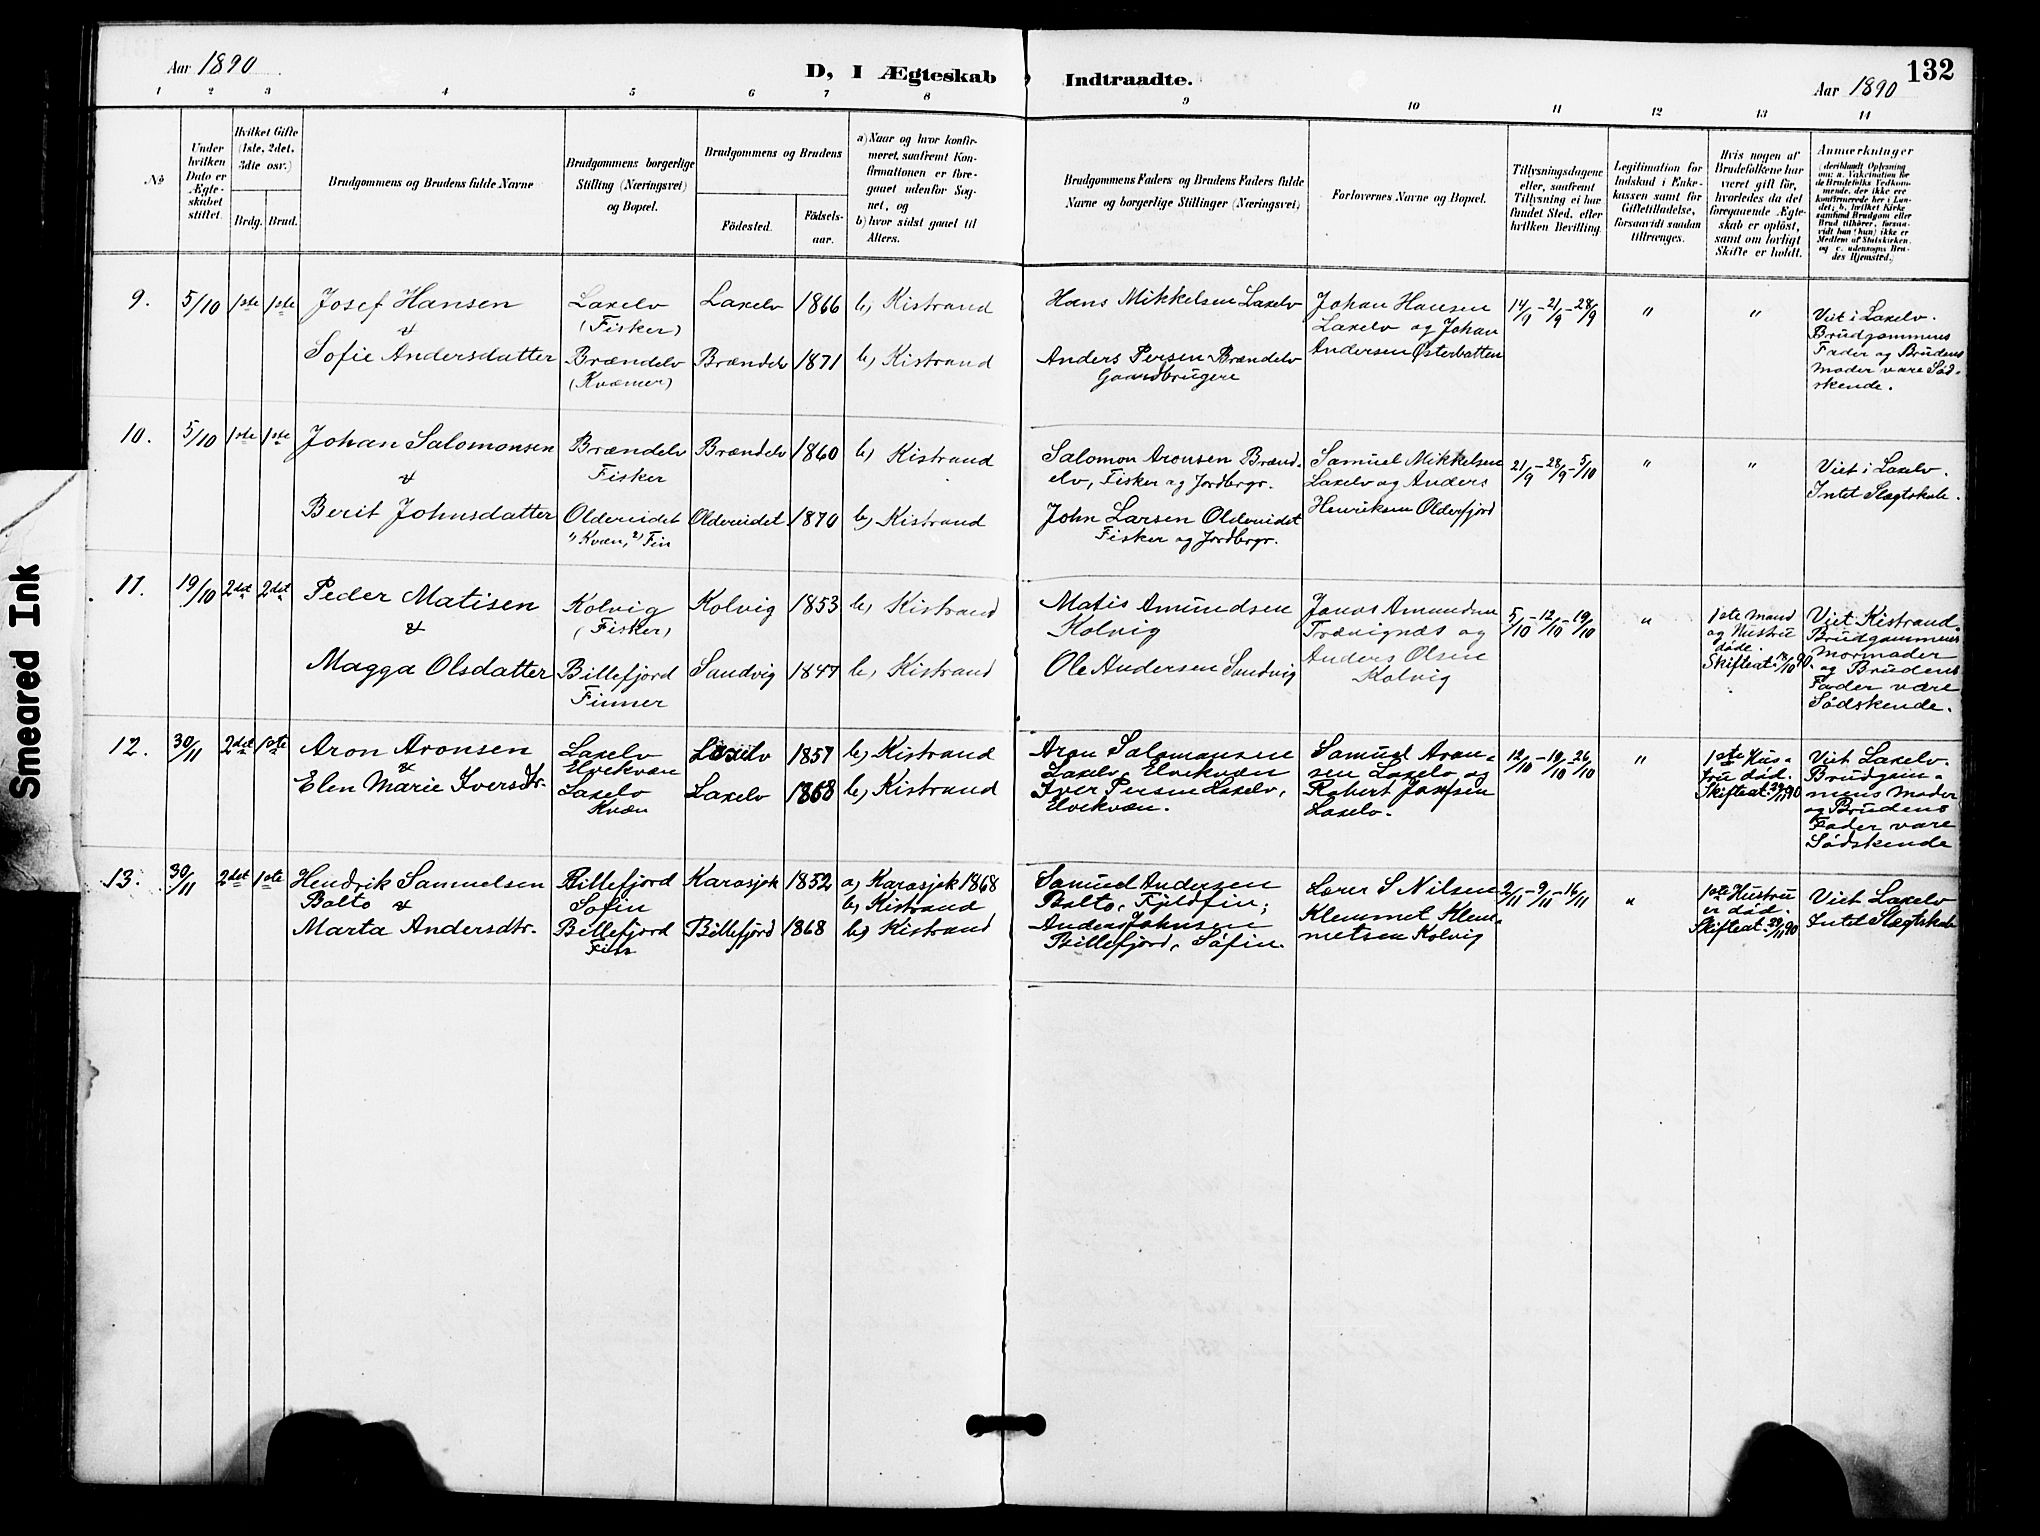 Aar 1890
D, I Ægteskab Indtraadte.
132
Aar 1890
1 2 3 4 5 6 7 8 9 10 11 12 13 14
No
Under
hvilken
Dato er
Ægte-
skabet
stiftet.
Hvilket Gifte
(1ste, 2det,
3die osv.)
Brdg. Brud.
Brudgommens og Brudens fulde Navne
Brudgommens borgerlige
Stilling (Næringsvei)
og Bopæl.
Brudgommens og Brudens
Födested.
Födsels-
aar.
a) Naar og hvor konfir-
meret, saafremt Kon-
firmationen er fore-
gaaet udenfor Sog-
net, og
b) hvor sidst gaaet til
Alters.
Brudgommens Faders og Brudens Faders fulde
Navne og borgerlige Stillinger (Næringsvei)
Forlovernes Navne og Bopæl.
Tillysningsdagene
eller, saafremt
Tillysning ei har
fundet Sted, efter
hvilken Bevilling.
Legitimation for
Indskud i Enke-
kassen samt for
Giftetilladelse,
forsaavidt saadan
tiltrænges.
Hvis nogen af
Brudefolkene har
været gift för,
hvorledes da det
foregaaende Ægte-
skab er oplöst,
samt om lovligt
Skifte er holdt.
Anmærkninger
(deriblandt Oplysning
om: a. Vakcination for
de Brudefolks Vedkom-
mende, der ikke ere
konfirmerede her i Lan-
det; b. hvilket Kirke-
samfund Brudgom eller
Brud tilhörer, forsaa-
vidt han (hun) ikke er
Medlem af Statskirken
og c. udensogns Bru-
des Hjemsted.)
9. 5/10 1ste 1ste
Josef Hansen
&
Sofie Andersdatter
Laxelv
(Fisker)
Brændelv
(Kvæner)
Laxelv 1866 b) Kistrand
Brændelv 1871 b) Kistrand
Hans Mikkelsen Laxelv
Anders Persen Brændelv
Gaardbrugere
Johan Hansen
Laxelv og Johan
Andersen Østerbotten
14/9 - 21/9 - 28/9
" "
Viet i Laxelv.
Brudgommens
Fader og Brudens
Moder vare Sød-
skende.
10. 5/10 1ste 1ste
Johan Salomonsen
&
Berit Johnsdatter
Brændelv
Fisker
Oldereidet
1) Kvæn, 2) Fin
Brændelv 1860 b) Kistrand
Oldereidet 1870 b) Kistrand
Salomon Aronsen Brænd-
elv, Fisker og Jordbrgr.
John Larsen Oldereidet
Fisker og Jordbrgr.
Samuel Mikkelsen
Laxelv og Anders
Henriksen Olderfjord
21/9 - 28/9 - 5/10
" "
Viet i Laxelv.
Intet Slægtskab.
11. 19/10 2det 2det
Peder Matisen
&
Magga Olsdatter
Kolvig
(Fisker)
Billefjord
Finner
Kolvig 1853 b) Kistrand
Sandvig 1847 b) Kistrand
Matis Amundsen
Kolvig
Ole Andersen Sandvig
Jonas Amundsen
Trævignæs og
Anders Olsen
Kolvig
5/10 - 12/10 - 19/10
"
1ste Mand
og Hustru
døde.
Viet Kistrand.
Brudgommens
Mormoder
og Brudens
Fader vare
Sødskende.
12. 30/11 2det 1ste
Aron Aronsen
&
Elen Marie Iversdtr.
Laxelv
Elvekvæn
Laxelv
Kvæn
Laxelv 1857 b) Kistrand
Laxelv 1868 b) Kistrand
Aron Salomonsen
Laxelv, Elvekvæn
Iver Persen Laxelv,
Elvekvæn.
Samuel Aron-
sen Laxelv og
Robert Josefsen
Laxelv.
12/10 - 19/10 - 26/10
"
1ste Hus-
tru død.
Viet Laxelv.
Brudgom-
mens Moder
og Brudens
Fader vare
Sødskende
13. 30/11 2det 1ste
Hendrik Samuelsen
Balto &
Marta Andersdtr.
Billefjord
Søfin
Billefjord
Fin
Karasjok 1852 a) Karasjok 1868
b) Kistrand
Billefjord 1868 b) Kistrand
Samuel Andersen
Balto, Fjeldfin;
Anders Johnsen
Billefjord, Søfin.
Lærer S Nilsen
Klemmet Klem-
metsen Kolvig
2/11 - 9/11 - 16/11
"
1ste Hustru
er død.
Viet Laxelv
Intet Slægtskab
Smeared Ink